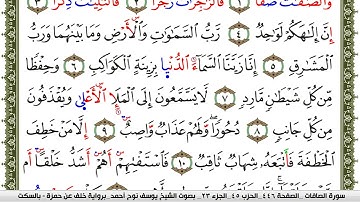 وَٱلصَّٰٓفَّٰتِ صَفّٗا ١ فَٱلزَّٰجِرَٰتِ زَجۡرٗا ٢ فَٱلتَّٰلِيَٰتِ ذِكۡرًا ٣
إِنَّ إِلَٰهَكُمۡ لَوَٰحِدٞ ٤ رَّبُّ ٱلسَّمَٰوَٰتِ وَٱلۡأَرۡضِ وَمَا بَيۡنَهُمَا وَرَبُّ
ٱلۡمَشَٰرِقِ ٥ إِنَّا زَيَّنَّا ٱلسَّمَآءَ ٱلدُّنۡيَا بِزِينَةٍ ٱلۡكَوَاكِبِ ٦ وَحِفۡظٗا
مِّن كُلِّ شَيۡطَٰنٖ مَّارِدٖ ٧ لَّا يَسَّمَّعُونَ إِلَى ٱلۡمَلَإِ ٱلۡأَعۡلَىٰ وَيُقۡذَفُونَ
مِن كُلِّ جَانِبٖ ٨ دُحُورٗاۖ وَلَهُمۡ عَذَابٞ وَاصِبٌ ٩ إِلَّا مَنۡ خَطِفَ
ٱلۡخَطۡفَةَ فَأَتۡبَعَهُۥ شِهَابٞ ثَاقِبٞ ١٠ فَٱسۡتَفۡتِهِمۡ أَهُمۡ أَشَدُّ خَلۡقًا أَم
سورة الصافات _ الصفحة ٤٤٦_ الحزب ٤٥_ الجزء ٢٣ _ بصوت الشيخ يوسف نوح أحمد _ برواية خلف عن حمزة - بالسكت